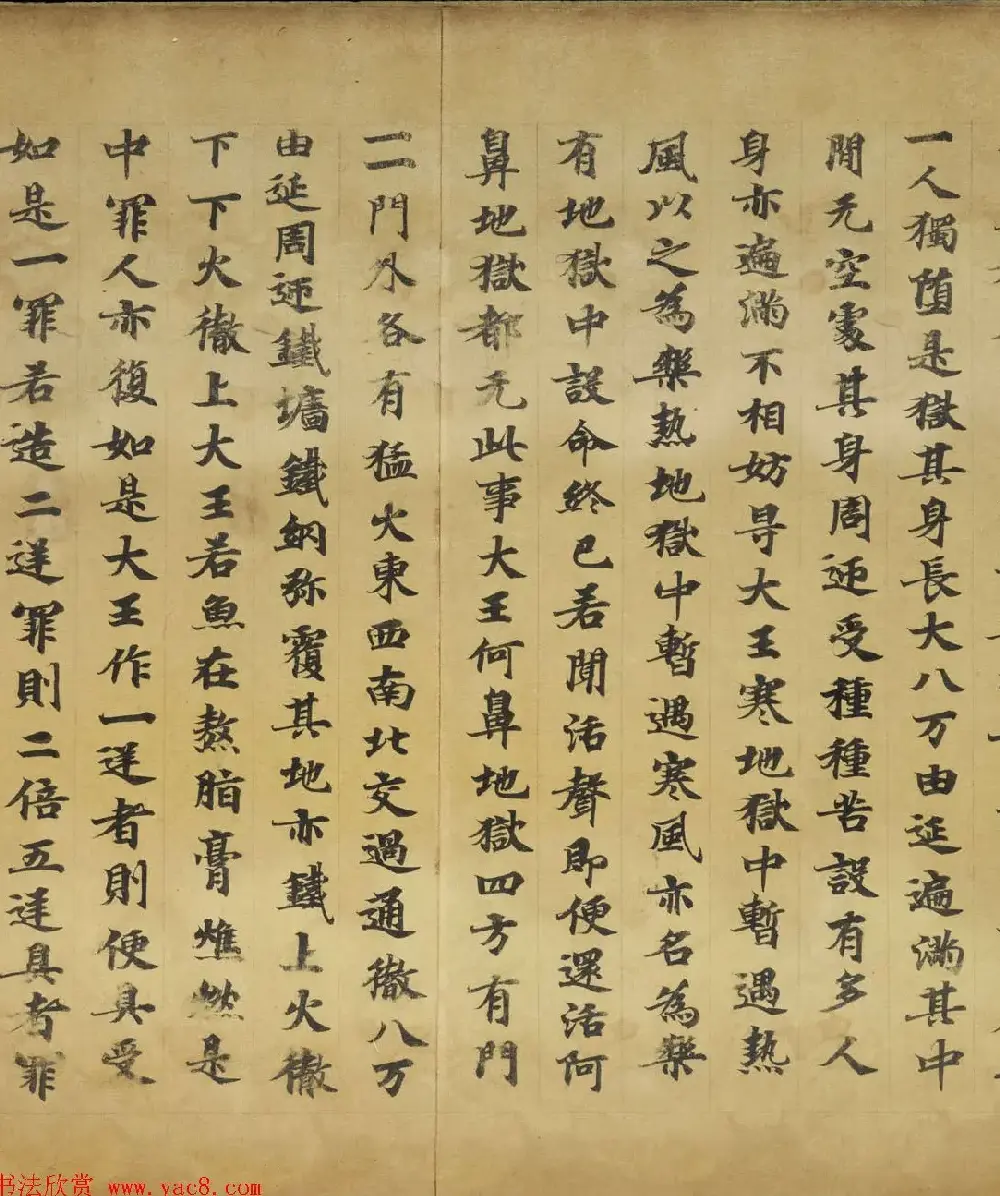 一人獨堕是獄其身長大八万由延遍滿其中
間无空處其身周迊受種種苦設有多人
身亦遍滿不相妨㝵大王寒地獄中暫遇熱
風以之為樂熱地獄中暫遇寒風亦名為樂
有地獄中設命終已若聞活聲即便還活阿
鼻地獄都无此事大王何鼻地獄四方有門
一一門外各有猛火東西南北交過通徹八万
由延周迊鐵墻鐵網弥覆其地亦鐵上火徹
下下火徹上大王若魚在熬脂膏燋燃是
中罪人亦復如是大王作一逆者則便具受
如是一罪若造二逆罪則二倍五逆具者罪
书法欣赏 www.yac8.com